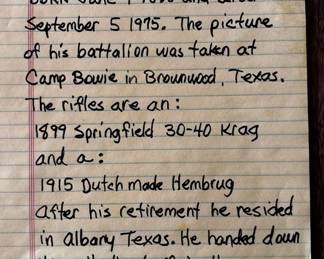 September 5 1975. The picture
of his battalion was taken at
Camp Bowie in Brownwood, Texas.
The rifles are an:
1899 Springfield 30-40 Krag
and a:
1915 Dutch made Hembrug
After his retirement he resided
in Albany Texas. He handed down